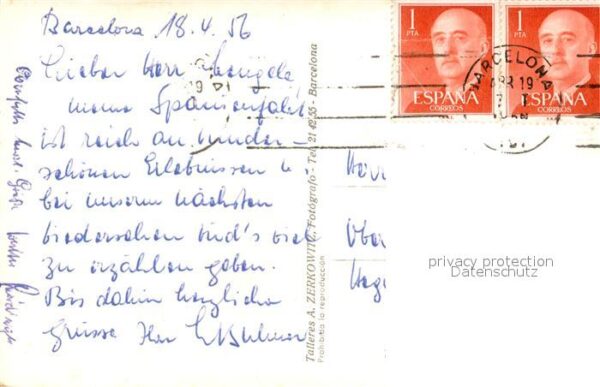 Barcelona 18.4.56
Lieber Herr
meine Spanienfahrt
ist reich an wunder-
schönen Erlebnissen u.
bei unserem nächsten
Wiedersehen wird's viel
zu erzählen geben.
Bis dahin herzliche
Grüsse Ihr
Talleres A. ZERKOWITZ, Fotógrafo - Tel. 21 42 55 - Barcelona
Prohibida la reproducción
1
PTA
ESPAÑA
CORREOS
1
PTA
ESPAÑA
CORREOS
BARCELONA
ABR 19
Herr
Ober
privacy protection
Datenschutz